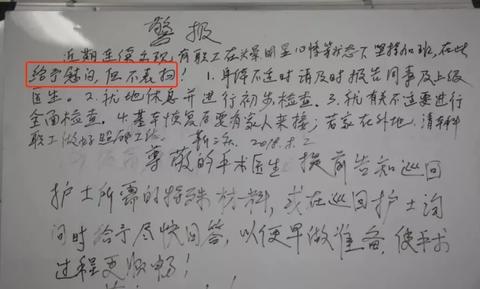 警报
近期连续出现，有职工在头晕明显心悸等状态下坚持加班，在此
给予慰问，但不表扬！1.身体不适时请及时报告同事及上级
医生。2.就地休息并进行初步检查。3.就有关不适要进行
全面检查。4.基本恢复后要有家人来接；若家在外地，请本科
职工做好照顾工作。 2018.8.2
尊敬的手术医生 提前告知巡回
护士所需的特殊材料，或在巡回护士询
问时给予尽快回答，以便早做准备，使手术
过程更顺畅！